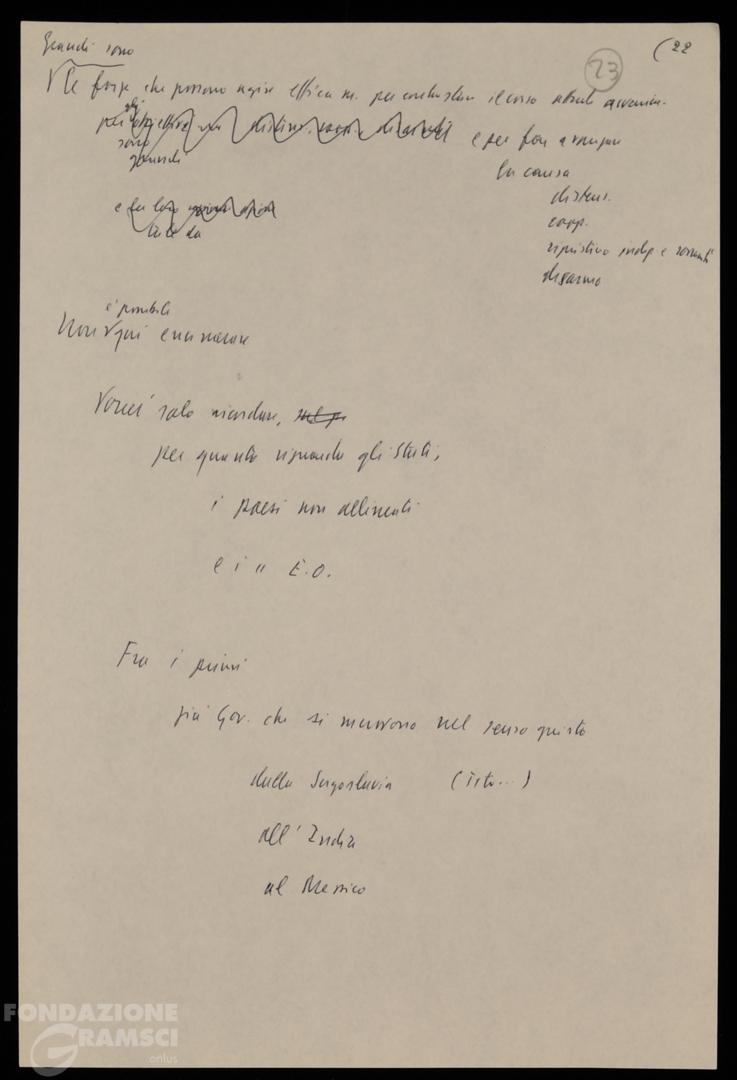 (22
23
Grandi sono
Le forze che possono agire effica m. per contrastare il corso attuale
e per far avanzare
la causa
distens.
coop.
ripristino indip e sovranità
disarmo
è possibile
Non qui enumerare
Vorrei solo ricordare,
per quanto riguarda gli Stati,
i paesi non allineati
e i " E.O.
Fra i primi
più Gov. che si muovono nel senso giusto
dalla Jugoslavia (Tito...)
all'India
al Messico
FONDAZIONE
GRAMSCI
onlus